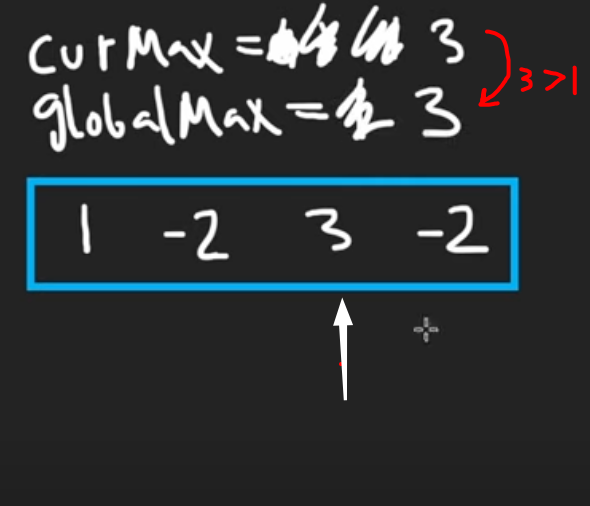 curMax = 3
3>1
globalMax = 3
1 -2 3 -2